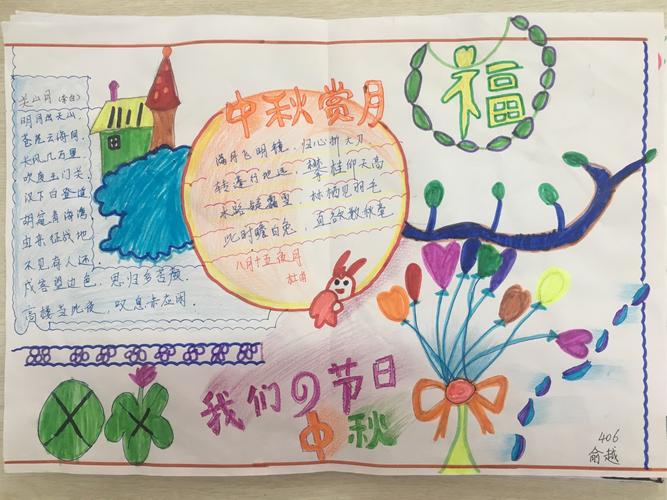 关山月（李白）
明月出天山
苍茫云海间
长风几万里
吹度玉门关
汉下白登道
胡窥青海湾
由来征战地
不见有人还.
戍客望边色，思归多苦颜
高楼当此夜，叹息未应闲.
中秋赏月
满月飞明镜，归心折大刀
转蓬行地远，攀桂仰天高
水路疑霜雪，林栖见羽毛
此时瞻白兔，直欲数秋毫
八月十五夜月
杜甫
福
我们の节日
中秋
406
俞越